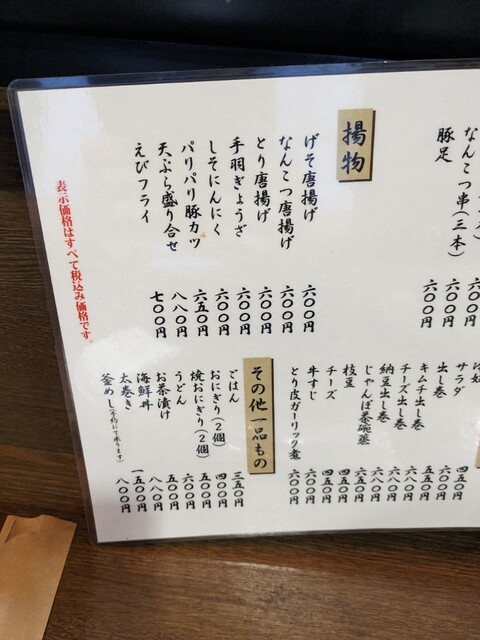 なんこつ串(三本) 六〇〇円
豚足 六〇〇円
揚物
げそ唐揚げ 六〇〇円
なんこつ唐揚げ 六〇〇円
とり唐揚げ 六〇〇円
手羽ぎょうざ 六〇〇円
しそにんにく 六〇〇円
パリパリ豚カツ 六五〇円
天ぷら盛り合せ 八八〇円
えびフライ 七〇〇円
表示価格はすべて税込み価格です。
四五〇円
サラダ 六〇〇円
出し巻 五五〇円
キムチ出し巻 六八〇円
チーズ出し巻 六八〇円
納豆出し巻 六八〇円
じゃんぼ茶碗蒸 六五〇円
枝豆 四五〇円
チーズ 四五〇円
牛すじ 六〇〇円
とり皮ガーリック煮 六〇〇円
その他一品もの
ごはん 三五〇円
おにぎり(2個) 四〇〇円
焼おにぎり(2個) 五〇〇円
うどん 六〇〇円
お茶漬け 五〇〇円
海鮮丼 八八〇円
太巻き 一五〇〇円
釜めし(予約にて承ります) 八〇〇円